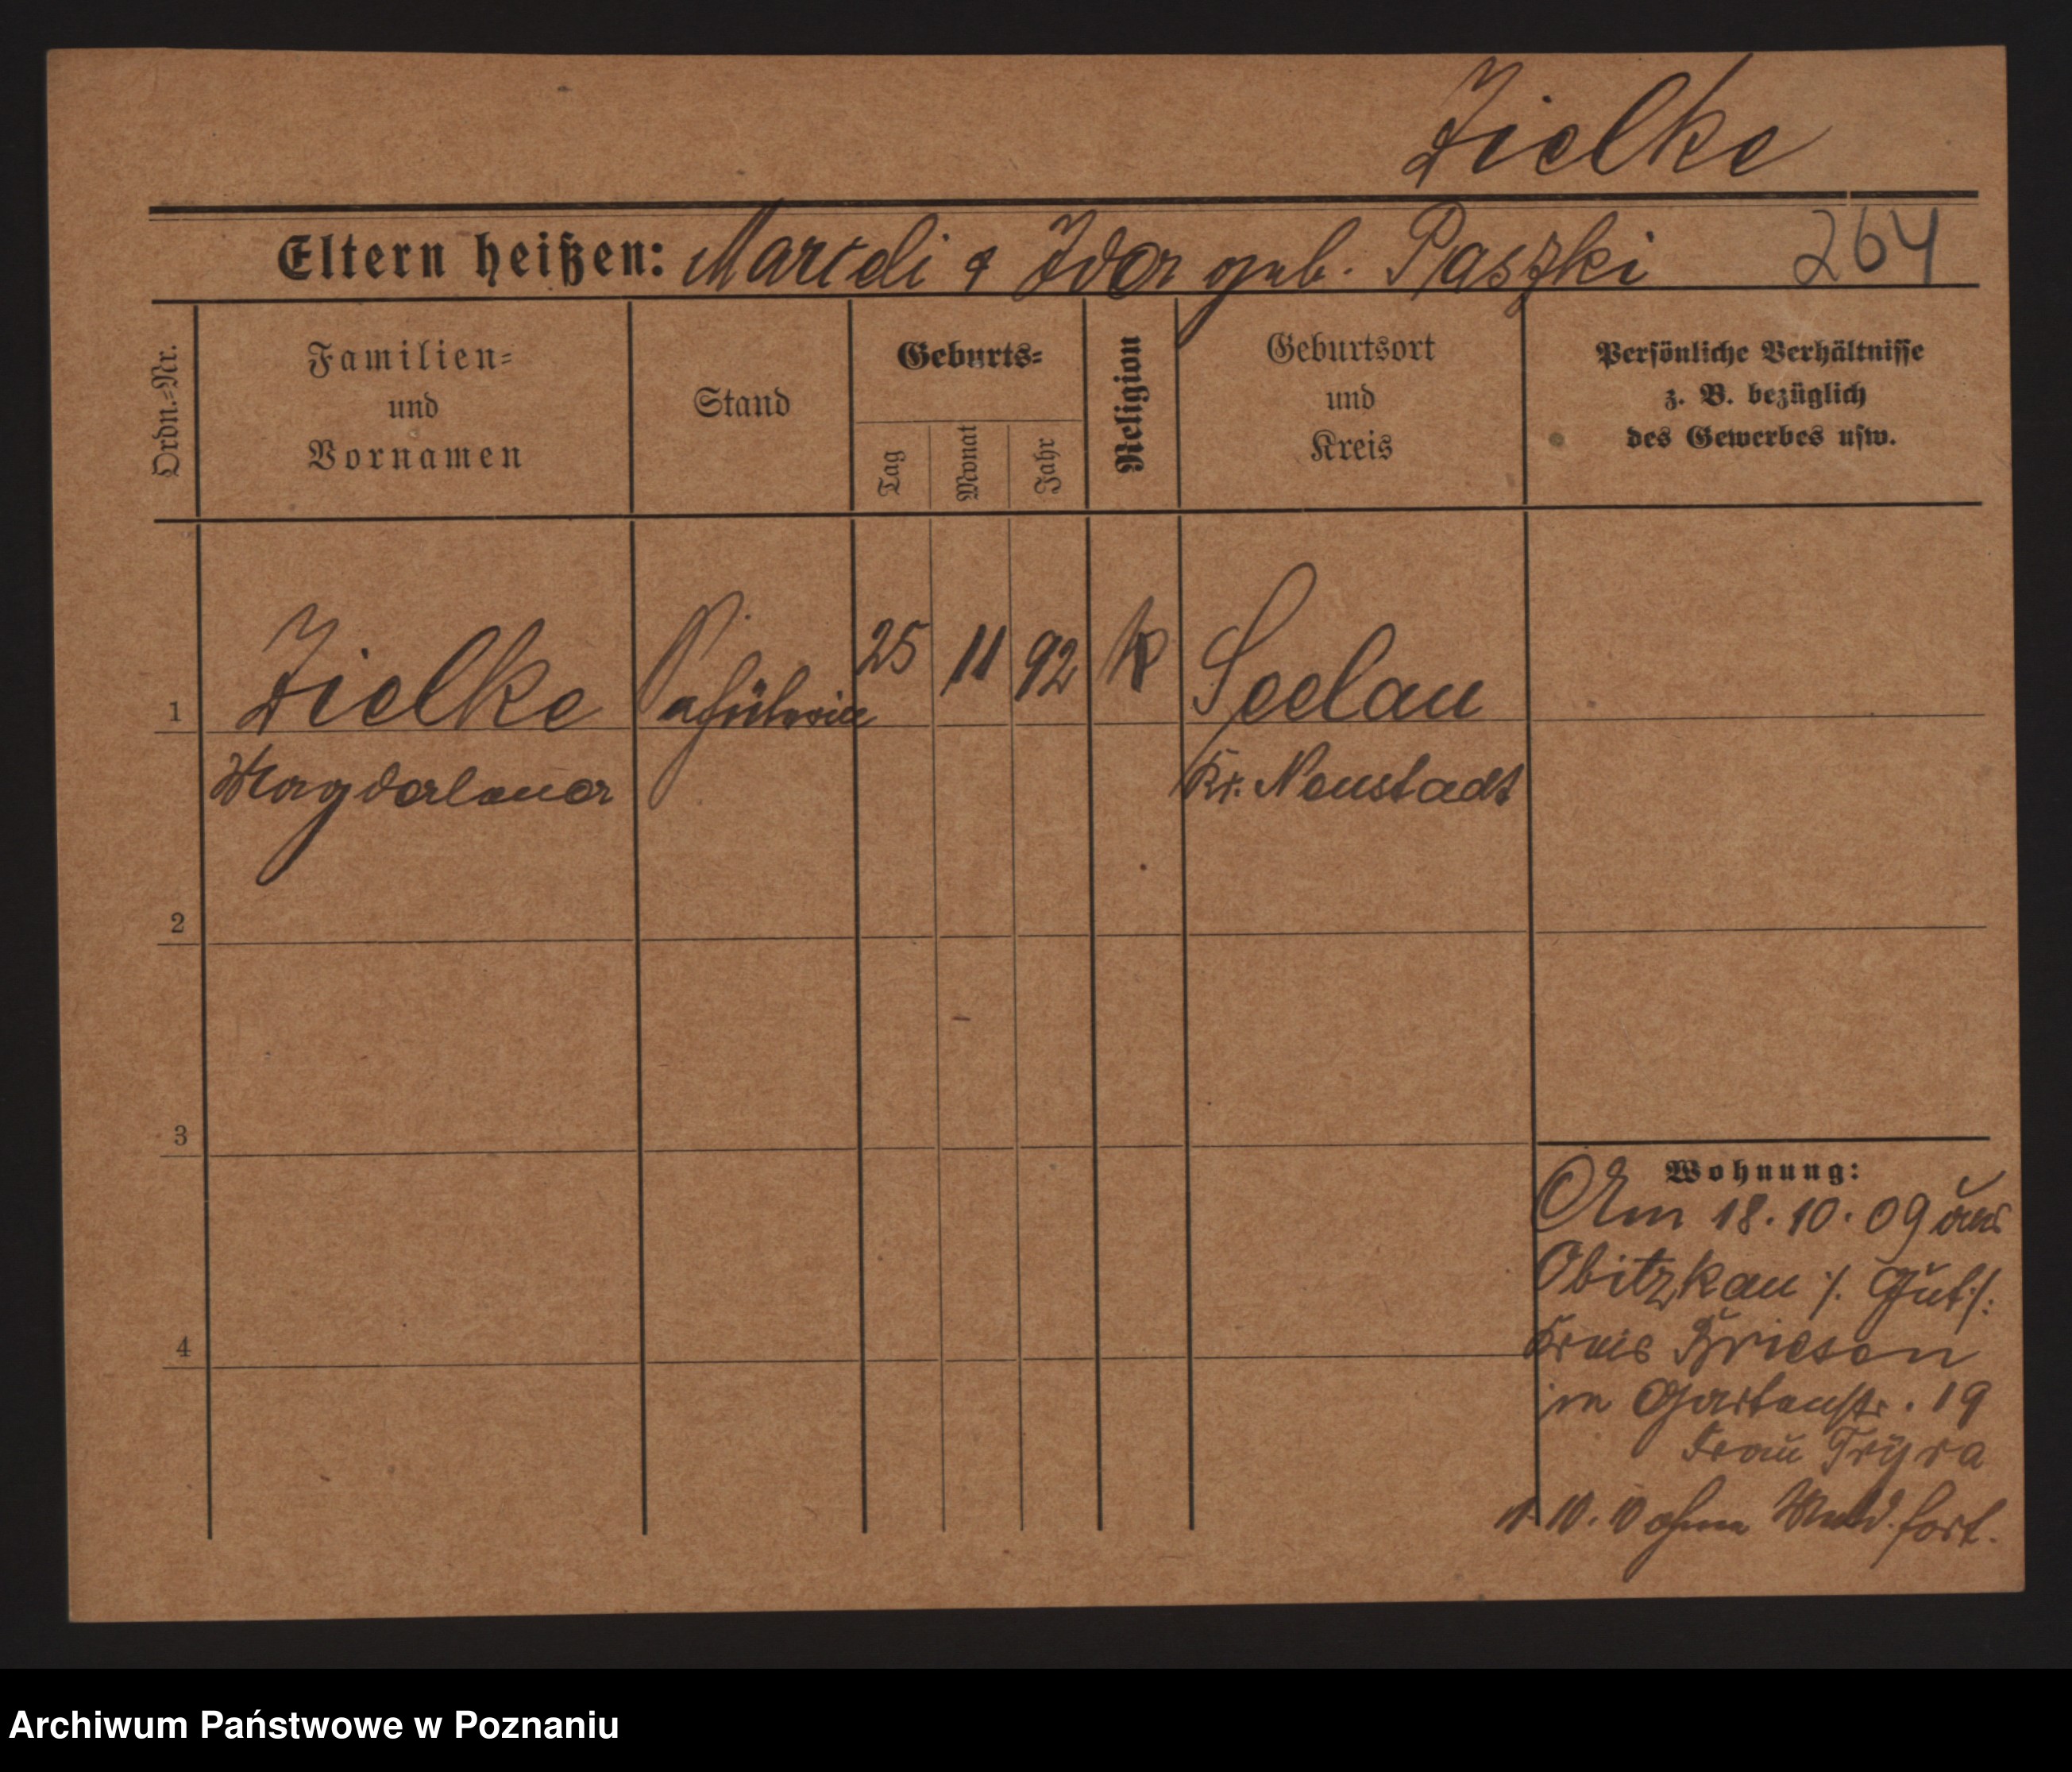 Zielke
Eltern heißen: Marceli & Ida geb. Paszki 264
Ordn.=Nr.
Familien=
und
Vornamen
Stand
Geburts=
Tag
Monat
Jahr
Religion
Geburtsort
und
Kreis
Persönliche Verhältnisse
z. B. bezüglich
des Gewerbes usw.
1 Zielke Schülerin 25 11 92 k Seelau
Magdalena Kr. Neustadt
2
3
4
Wohnung:
Am 18.10.09 aus
Obitzkau /. Gut/:
Kreis Briesen
in Gartenstr. 19
Frau Tryra
1.10.10 ohne Meld. fort.
Archiwum Państwowe w Poznaniu